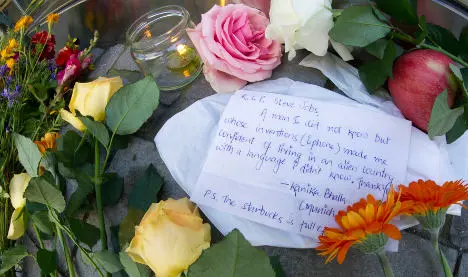 R.I.P. Steve Jobs,
A man I did not know but
whose inventions (iphone) made me
confident of living in an alien country
with a language I didn't know. Thanks
- Kanika Bhatia
(Munich
P.S. The starbucks is full